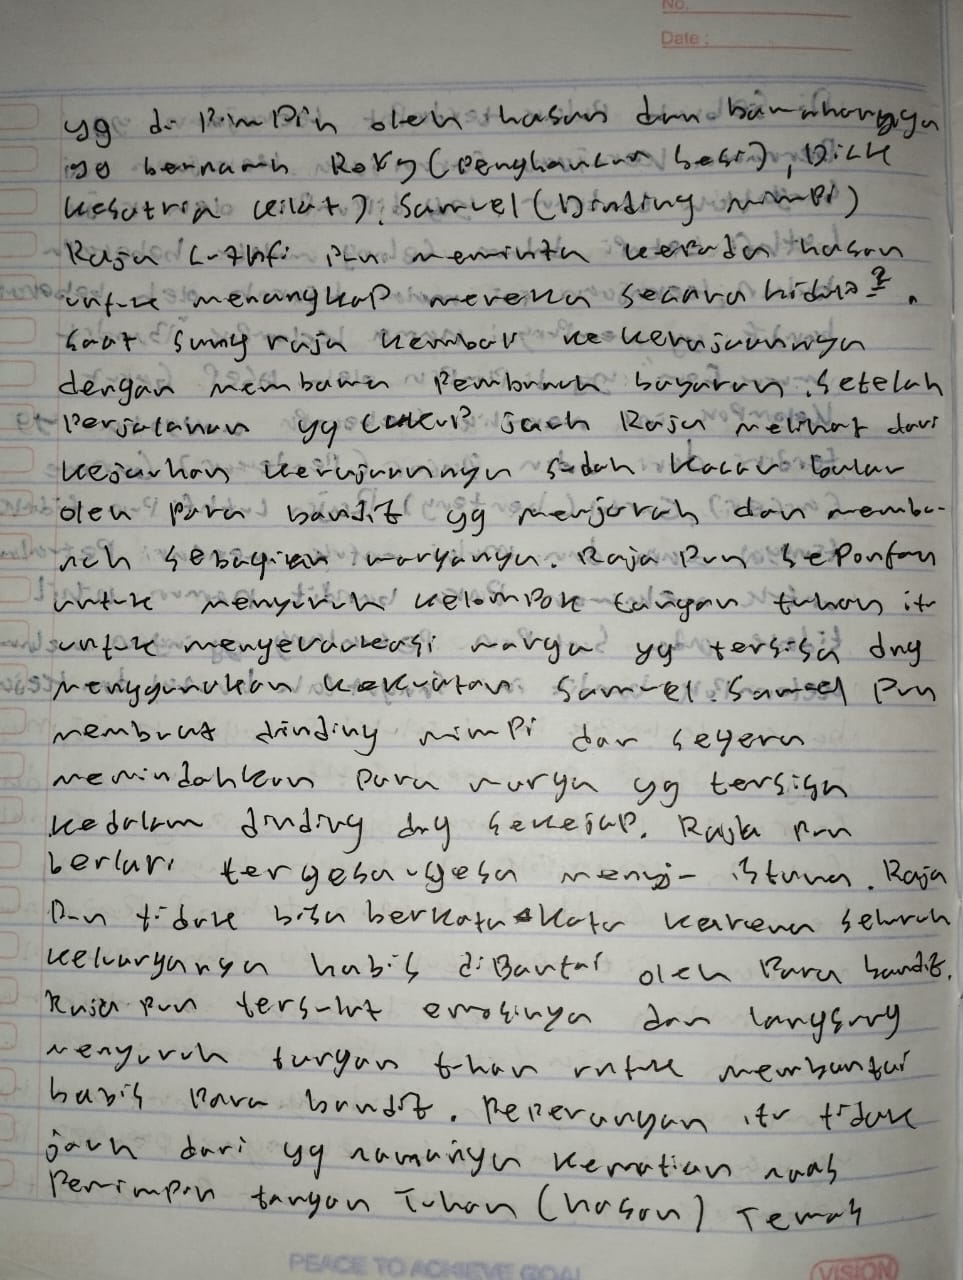 No.
Date :
yg di Pimpin oleh hasan dan bawahannya
yg bernama Roky (Penghancur besi), Dick
kesatria kilat), Samuel (Dinding mimpi)
Raja Luthfi Pun meminta kepada hasan
untuk menangkap mereka secara hidup².
Saat Sang raja kembali ke kerajaannya
dengan membawa Pembunuh bayaran. Setelah
Perjalanan yg cukup jauh Raja melihat dari
kejauhan kerajaannya sudah kacau balau
oleh para bandit yg menjarah dan membu-
nuh sebagian warganya. Raja Pun sepontan
untuk menyuruh kelompok tangan tuhan itu
untuk mengevakuasi warga yg tersisa dng
menggunakan kekuatan Samuel. Samuel Pun
membuat dinding mimpi dan segera
memindahkan para warga yg tersisa
kedalam dinding dng sekejap. Raja Pun
berlari tergesa-gesa menuju istana. Raja
Pun tidak bisa berkata-kata karena seluruh
keluarganya habis diBantai oleh Para bandit.
Raja pun tersulut emosinya dan langsung
menyuruh tangan tuhan untuk membantai
habis Para bandit. Peperangan itu tidak
jauh dari yg namanya kematian naas
Pemimpin tangan Tuhan (hasan) Tewas
PEACE TO ACHIEVE GOAL
VISION